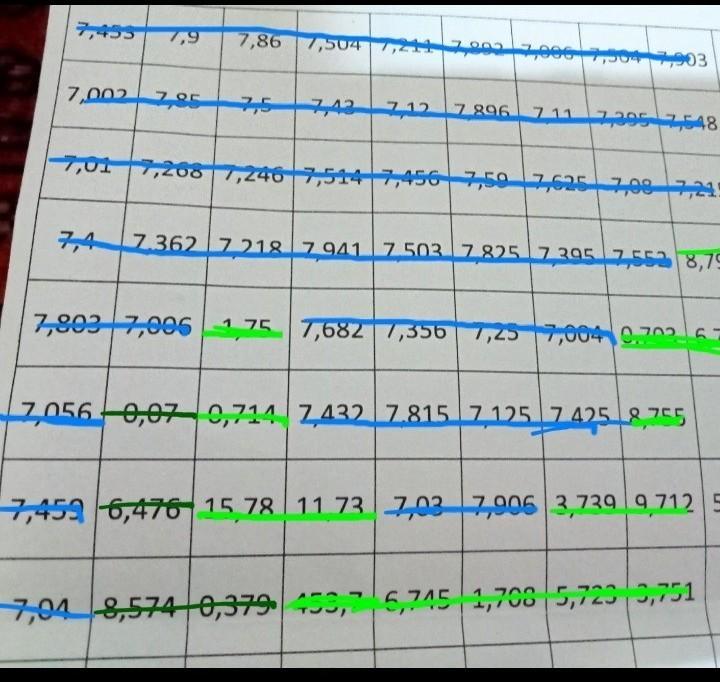 7,453 7,9 7,86 7,504 7,211 7,892 7,006 7,504 7,903
7,002 7,85 7,5 7,43 7,12 7,896 7,11 7,395 7,548
7,01 7,268 7,246 7,514 7,456 7,59 7,625 7,08
7,4 7,362 7,218 7,941 7,503 7,825 7,395 7,552
7,803 7,006 1,75 7,682 7,356 7,25 7,004 0,702
7,056 0,07 0,714 7,432 7,815 7,125 7,425 8,755
7,459 6,476 15,78 11,73 7,03 7,906 3,739 9,712
7,04 8,574 0,379 453,7 6,745 1,708 5,723 3,751